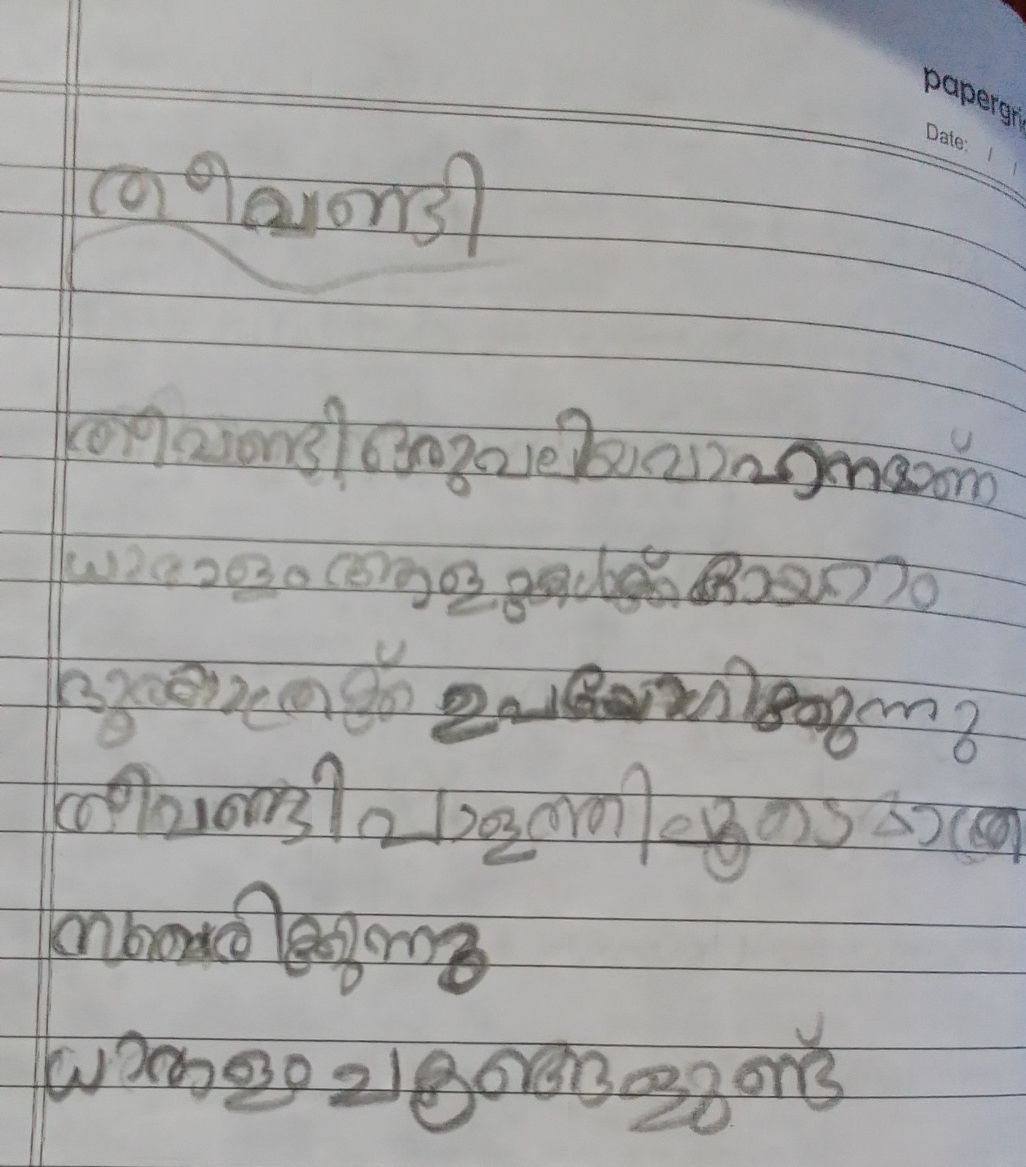 papergri
Date: / /
തീവണ്ടി
തീവണ്ടി ഒരു വലിയ വാഹനമാണ്
ധാരാളം ആളുകൾക്ക്
ഉപയോഗിക്കുന്നു
തീവണ്ടി പാളത്തിലൂടെ മാത്ര
സഞ്ചരിക്കുന്നു
ധാരാളം ചക്രങ്ങളുണ്ട്